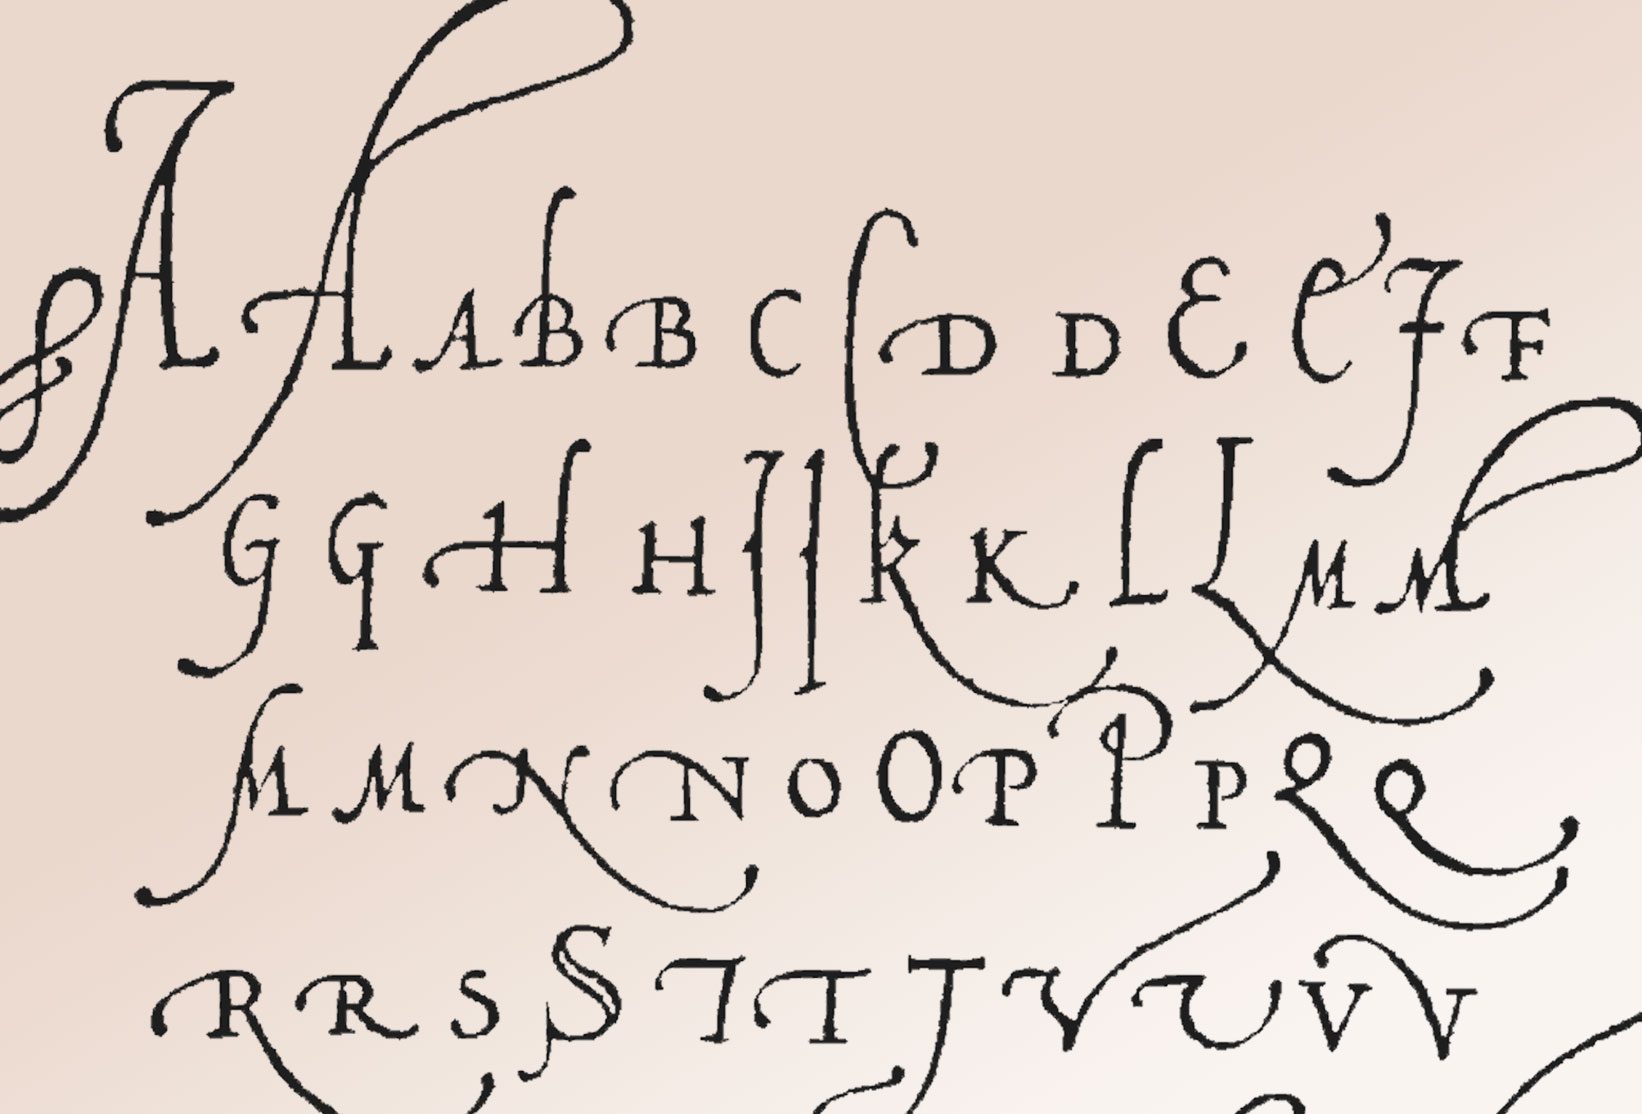 & A A A B B C D D E E F F
G G H H J I K K L L M M
M M N N O O P P P Q Q
R R S S T T T V U V V